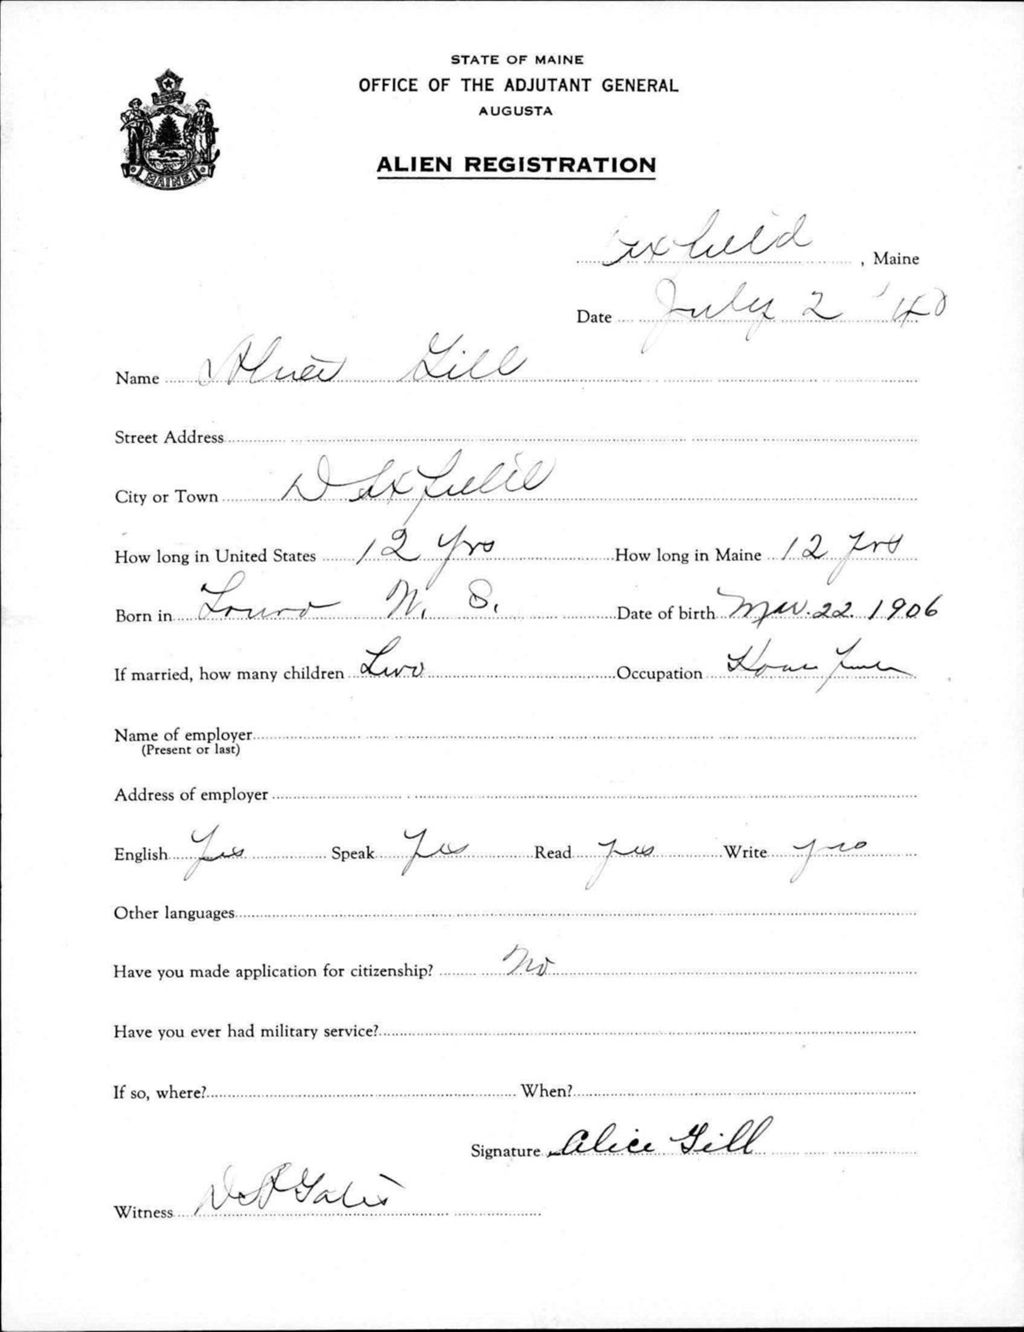 STATE OF MAINE
OFFICE OF THE ADJUTANT GENERAL
AUGUSTA
MAINE
ALIEN REGISTRATION
Dixfield, Maine
Date July 2 '40
Name Alice Gill
Street Address
City or Town Dixfield
How long in United States 12 yrs How long in Maine 12 yrs
Born in N. S. Date of birth Mar. 22. 1906
If married, how many children Two Occupation House
Name of employer
(Present or last)
Address of employer
English Yes Speak Yes Read yes Write yes
Other languages
Have you made application for citizenship? No
Have you ever had military service?
If so, where? When?
Signature Alice Gill
Witness